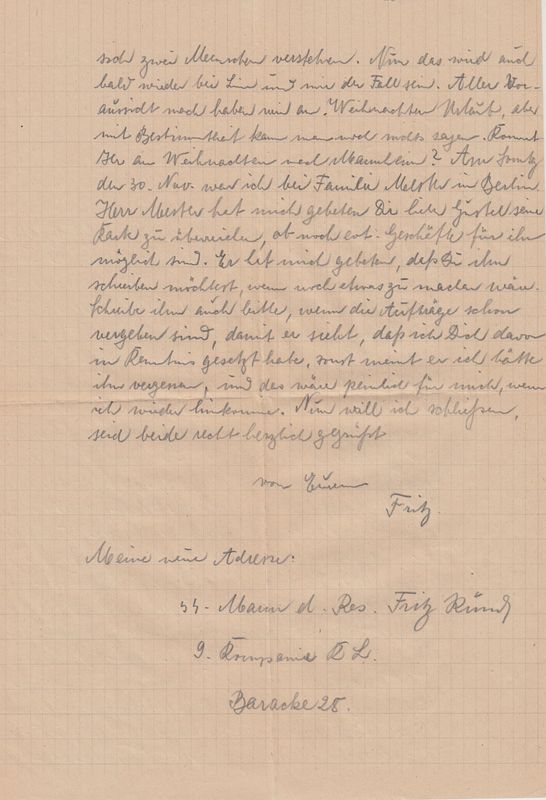 sich zwei Menschen verstehen. Nun das wird auch
bald wieder bei Lin und mir der Fall sein. Aller Vor-
aussicht nach haben wir an Weihnachten Urlaub, aber
mit Bestimmtheit kann man noch nichts sagen. Kommt
Ihr an Weihnachten nach Mannheim? Am Sonntg
den 30. Nov. war ich bei Familie Mester in Berlin.
Herr Mester hat mich gebeten Dir liebe Gustel seine
Karte zu überreichen, ob noch evt. Geschäfte für ihn
möglich sind. Er hat mich gebeten, daß Du ihm
schreiben möchtest, wenn noch etwas zu machen wäre.
Schreibe ihm auch bitte, wenn die Aufträge schon
vergeben sind, damit er sieht, daß ich Dich davon
in Kenntnis gesetzt habe, sonst meint er ich hätte
ihn vergessen, und das wäre peinlich für mich, wenn
ich wieder hinkomme. Nun will ich schließen,
seid beide recht herzlich gegrüßt
von Eurem
Fritz.
Meine neue Adresse:
SS-Mann d. Res. Fritz
9. Kompanie K L.
Baracke 28.